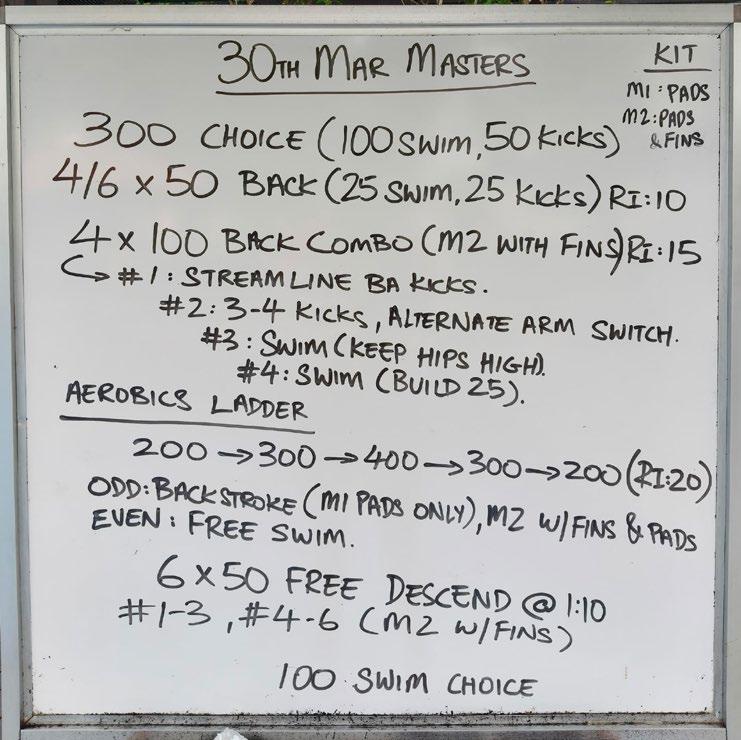 30TH MAR MASTERS
KIT
M1: PADS
M2: PADS
& FINS
300 CHOICE (100 SWIM, 50 KICKS)
4/6 x 50 BACK (25 SWIM, 25 KICKS) RI:10
4 x 100 BACK COMBO (M2 WITH FINS) RI:15
→ #1: STREAMLINE BA KICKS.
#2: 3-4 KICKS, ALTERNATE ARM SWITCH.
#3: SWIM (KEEP HIPS HIGH).
#4: SWIM (BUILD 25).
AEROBICS LADDER
200 → 300 → 400 → 300 → 200 (RI:20)
ODD: BACKSTROKE (M1 PADS ONLY), M2 W/FINS & PADS
EVEN: FREE SWIM.
6 x 50 FREE DESCEND @ 1:10
#1-3, #4-6 (M2 W/FINS)
100 SWIM CHOICE